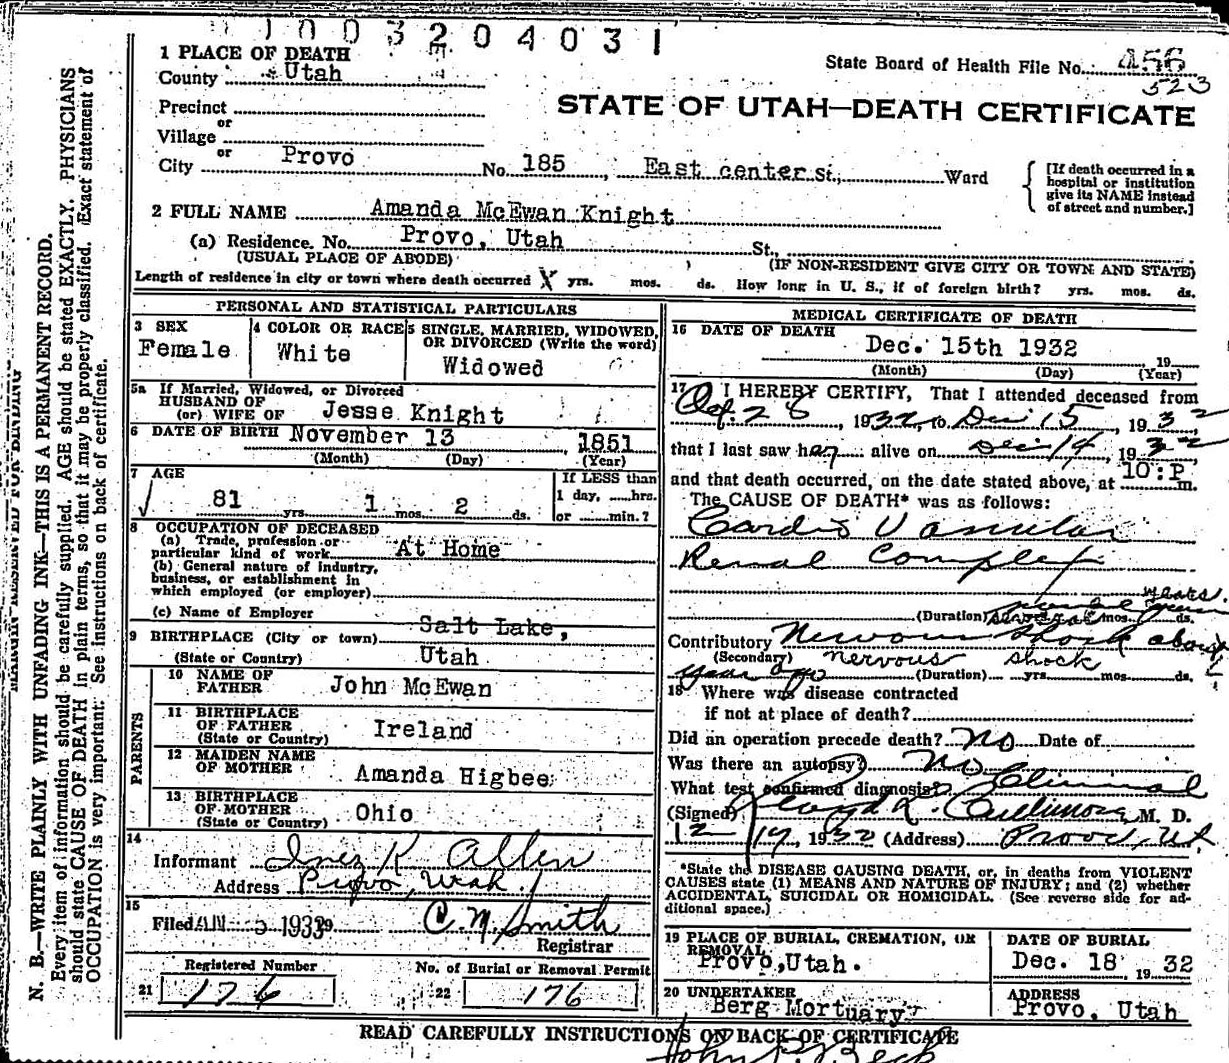 1003204031
1 PLACE OF DEATH
County Utah
State Board of Health File No. 456
523
Precinct
or
Village
or
City Provo No. 185, East center St., Ward
STATE OF UTAH—DEATH CERTIFICATE
[If death occurred in a
hospital or institution
give its NAME instead
of street and number.]
2 FULL NAME Amanda McEwan Knight
(a) Residence. No. Provo, Utah St.,
(USUAL PLACE OF ABODE) (IF NON-RESIDENT GIVE CITY OR TOWN AND STATE)
Length of residence in city or town where death occurred X yrs. mos. ds. How long in U. S., if of foreign birth? yrs. mos. ds.
PERSONAL AND STATISTICAL PARTICULARS
3 SEX
Female
4 COLOR OR RACE
White
5 SINGLE, MARRIED, WIDOWED,
OR DIVORCED (Write the word)
Widowed
5a If Married, Widowed, or Divorced
HUSBAND OF
(or) WIFE OF Jesse Knight
6 DATE OF BIRTH November 13 1851
(Month) (Day) (Year)
7 AGE
81 yrs. 1 mos. 2 ds.
If LESS than
1 day, hrs.
or min.?
8 OCCUPATION OF DECEASED
(a) Trade, profession or
particular kind of work At Home
(b) General nature of industry,
business, or establishment in
which employed (or employer)
(c) Name of Employer
9 BIRTHPLACE (City or town) Salt Lake,
(State or Country) Utah
PARENTS
10 NAME OF
FATHER John McEwan
11 BIRTHPLACE
OF FATHER
(State or Country) Ireland
12 MAIDEN NAME
OF MOTHER Amanda Higbee
13 BIRTHPLACE
OF MOTHER
(State or Country) Ohio
14
Informant Inez K Allen
Address Provo, Utah.
15
Filed JAN 5 1933 19 C. M. Smith
Registrar
Registered Number
21 176
No. of Burial or Removal Permit
22 176
MEDICAL CERTIFICATE OF DEATH
16 DATE OF DEATH
Dec. 15th 1932
19
(Month) (Day) (Year)
17 I HEREBY CERTIFY, That I attended deceased from
Oct. 28, 1932, to Dec 15, 1932
that I last saw her alive on Dec 14, 1932
and that death occurred, on the date stated above, at 10:P m.
The CAUSE OF DEATH* was as follows:
Cardio Vascular
Renal Complex
years.
(Duration) several mos. ds.
Contributory Nervous Shock about
(Secondary) nervous shock
year ago (Duration) yrs. mos. ds.
18 Where was disease contracted
if not at place of death?
Did an operation precede death? No Date of
Was there an autopsy? No
What test confirmed diagnosis? Clinical
(Signed) Lloyd L. Cullimore, M. D.
12/17, 1932 (Address) Provo, Ut.
*State the DISEASE CAUSING DEATH, or, in deaths from VIOLENT
CAUSES state (1) MEANS AND NATURE OF INJURY; and (2) whether
ACCIDENTAL, SUICIDAL OR HOMICIDAL. (See reverse side for ad-
ditional space.)
19 PLACE OF BURIAL, CREMATION, OR
REMOVAL
Provo, Utah.
DATE OF BURIAL
Dec. 18 19 32
20 UNDERTAKER
Berg Mortuary
ADDRESS
Provo, Utah
READ CAREFULLY INSTRUCTIONS ON BACK OF CERTIFICATE
John Beck
N. B.—WRITE PLAINLY WITH UNFADING INK—THIS IS A PERMANENT RECORD.
Every item of information should be carefully supplied. AGE should be stated EXACTLY. PHYSICIANS
should state CAUSE OF DEATH in plain terms, so that it may be properly classified. Exact statement of
OCCUPATION is very important. See instructions on back of certificate.